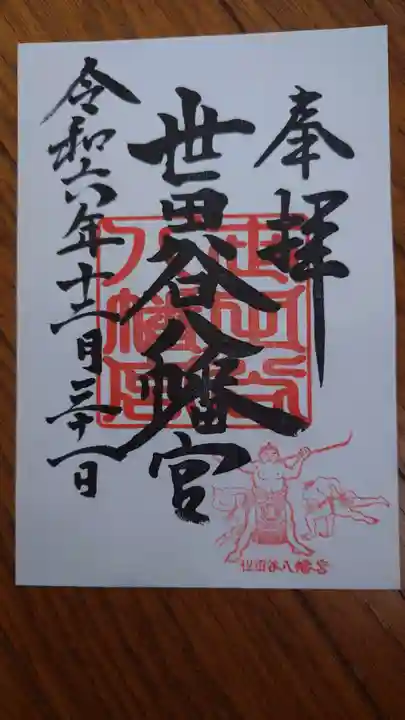 奉拝
世田谷八幡宮
令和六年十二月三十一日
世田谷
八幡宮
世田谷八幡宮